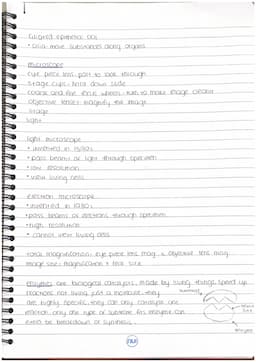 Ciliated epithelial cells
• cilia move substances along organs
microscope
eye piece lens: part to look through
stage clips: hold down slide
coarse and fine focus wheel: turn to make image clearer
objective lenses: magnify the image
stage
light
light microscope
• invented in 1590s
• pass beams of light through specimen
• low resolution
• view living cells
electron microscope
• invented in 1930s
• pass beams of electrons through specimen
• high resolution
• cannot view living cells
total magnification: eye piece lens mag x objective lens mag
image size: magnification x real size
enzymes are biological catalysts, made by living things, speed up
reactions
are highly specific, they can only catalyse one
reaction, only one type of substrate fits enzyme, can
either be breakdown or synthesis.
substrate
active
site
enzyme